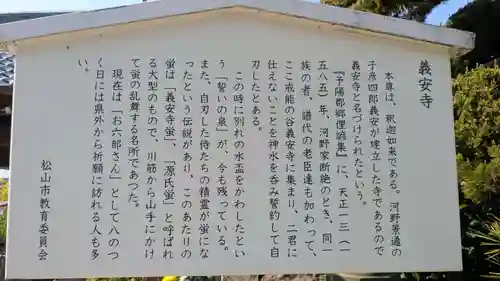 義安寺
本尊は、釈迦如来である。河野景通の
子彦四郎義安が建立した寺であるので
義安寺と名づけられたという。
『予陽郡郷俚諺集』に、天正一三（一
五八五）年、河野家断絶のとき、同一
族の者、譜代の老臣達も加わって、
ここ戒能の谷義安寺に集まり、二君に
仕えないことを神水を呑み誓約して自
刃したとある。
この時に別れの水盃をかわしたとい
う「誓いの泉」が、今も残っている。
また、自刃した侍たちの精霊が蛍にな
ったという伝説があり、このあたりの
蛍は「義安寺蛍」、「源氏蛍」と呼ばれ
る大型のもので、川筋から山手にかけ
て蛍の乱舞する名所であった。
現在は「お六部さん」として八のつ
く日には県外から祈願に訪れる人も多
い。
松山市教育委員会